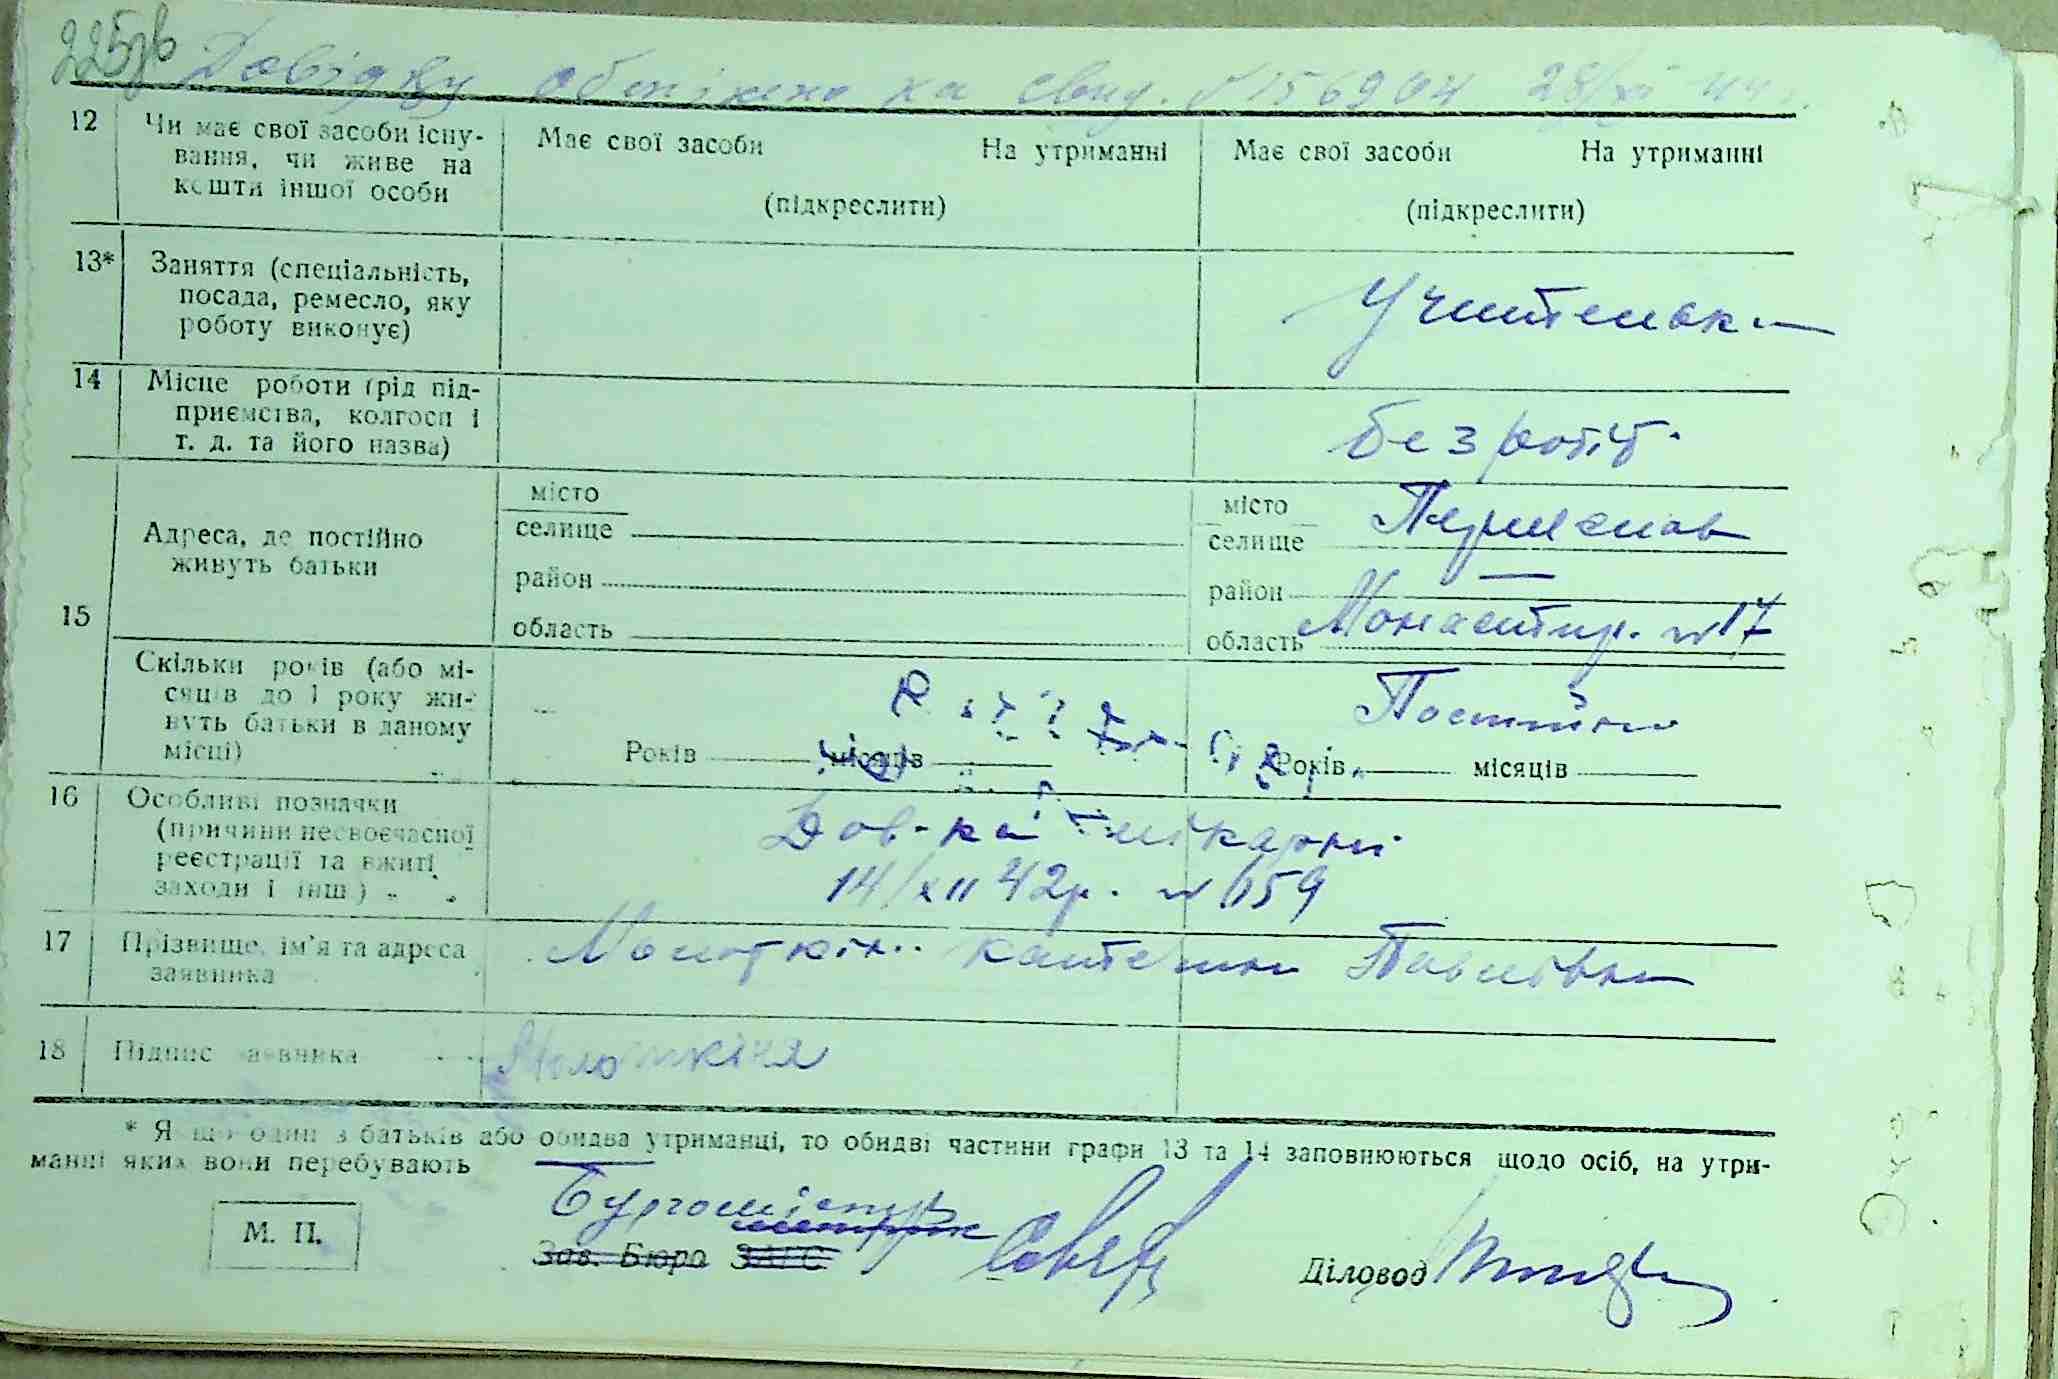 225зв Довідку обмінено на свид. № 156904 28/XI 44 р.
12 Чи має свої засоби існу-
вання, чи живе на
кошти іншої особи
Має свої засоби На утриманні
(підкреслити)
Має свої засоби На утриманні
(підкреслити)
13* Заняття (спеціальність,
посада, ремесло, яку
роботу виконує)
Учителька
14 Місце роботи (рід під-
приємства, колгосп і
т. д. та його назва)
без робіт.
15 Адреса, де постійно
живуть батьки
місто
селище
район
область
місто Переяслав
селище
район —
область Монастир. № 17
Скільки років (або мі-
сяців до 1 року жи-
вуть батьки в даному
місці)
Років місяців
Постійно
Років місяців
16 Особливі позначки
(причини несвоєчасної
реєстрації та вжиті
заходи і інш.)
Дов-ка лікарні
14/XII 42р. № 159
17 Прізвище, ім'я та адреса
заявника
Молоткіна Катерина Павлівна
18 Підпис заявника Молоткіна
* Якщо один з батьків або обидва утриманці, то обидві частини графи 13 та 14 заповнюються щодо осіб, на утри-
манні яких вони перебувають
М. П.
Бургомістр
Зав. Бюро ЗАГС
Діловод